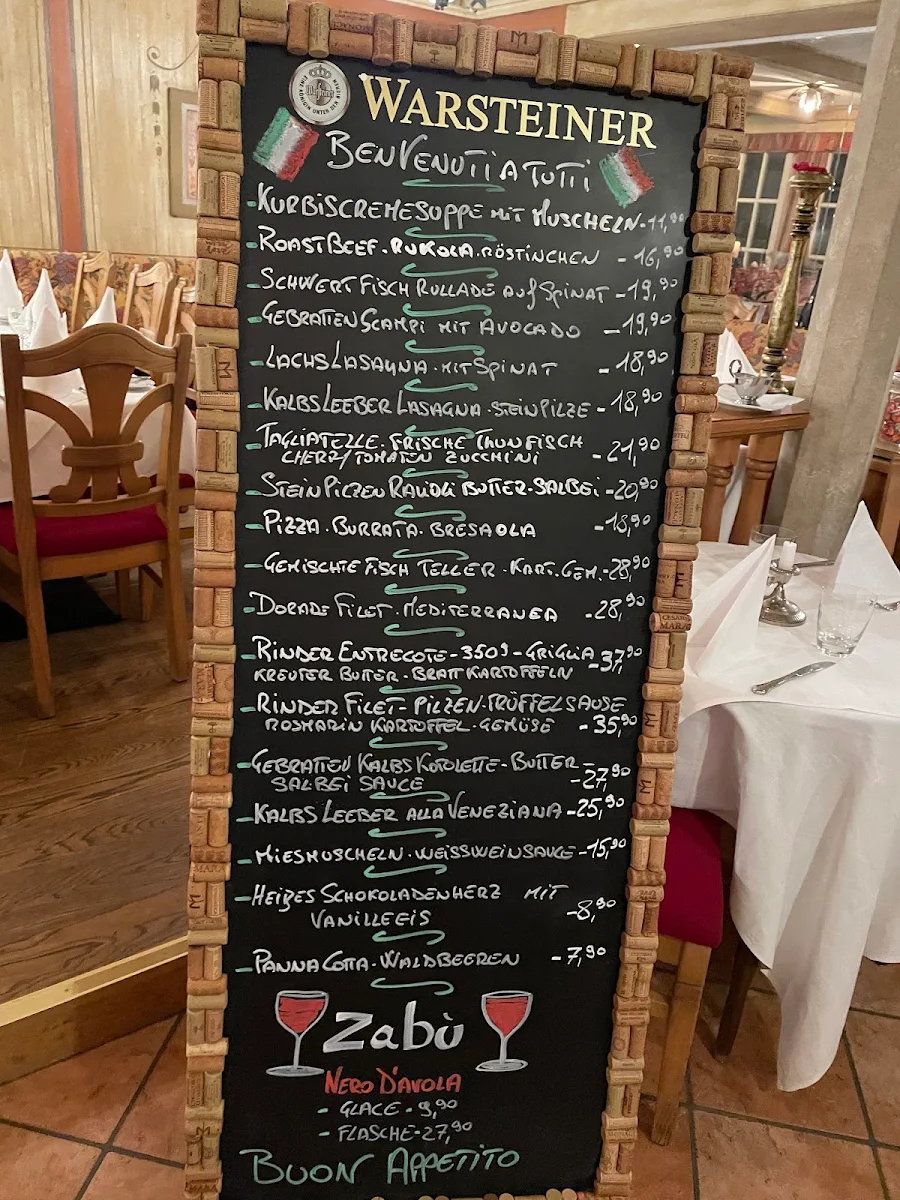 WARSTEINER
BENVENUTI A TUTTI
- KURBISCREMESUPPE MIT MUSCHELN - 11,90
- ROASTBEEF . RUKOLA . RÖSTINCHEN - 16,90
- SCHWERTFISCH RULLADE auf SPINAT - 19,90
- GEBRATTEN SCAMPI MIT AVOCADO - 19,90
- LACHS LASAGNA . MIT SPINAT - 18,90
- KALBSLEEBER LASAGNA . STEINPILZE - 18,90
- TAGLIATELLE . FRISCHE THUNFISCH
CHERRYTOMATEN ZUCCHINI - 21,90
- STEINPILZEN RAVIOLI BUTTER - SALBEI - 20,90
- PIZZA . BURRATA . BRESAOLA - 18,90
- GEMISCHTE FISCH TELLER . KART. GEM. - 28,90
- DORADE FILET . MEDITERRANEA - 28,90
- RINDER ENTRECOTE - 350g - GRIGLIA - 37,90
KREUTER BUTTER . BRATTKARTOFFELN
- RINDER FILET - PILZEN - TRÜFFELSAUSE
ROSMARIN KARTOFFEL - GEMÜSE - 35,90
- GEBRATTEN KALBS KOTOLETTE - BUTTER -
SALBEI SAUCE - 27,90
- KALBS LEEBER ALLA VENEZIANA - 25,90
- MIESMUSCHELN . WEISSWEINSAUCE - 15,90
- HEIßES SCHOKOLADENHERZ MIT
VANILLEEIS - 8,90
- PANNA COTTA . WALDBEEREN - 7,90
Zabù
NERO D'AVOLA
- GLACE - 9,90
- FLASCHE - 27,90
BUON APPETITO